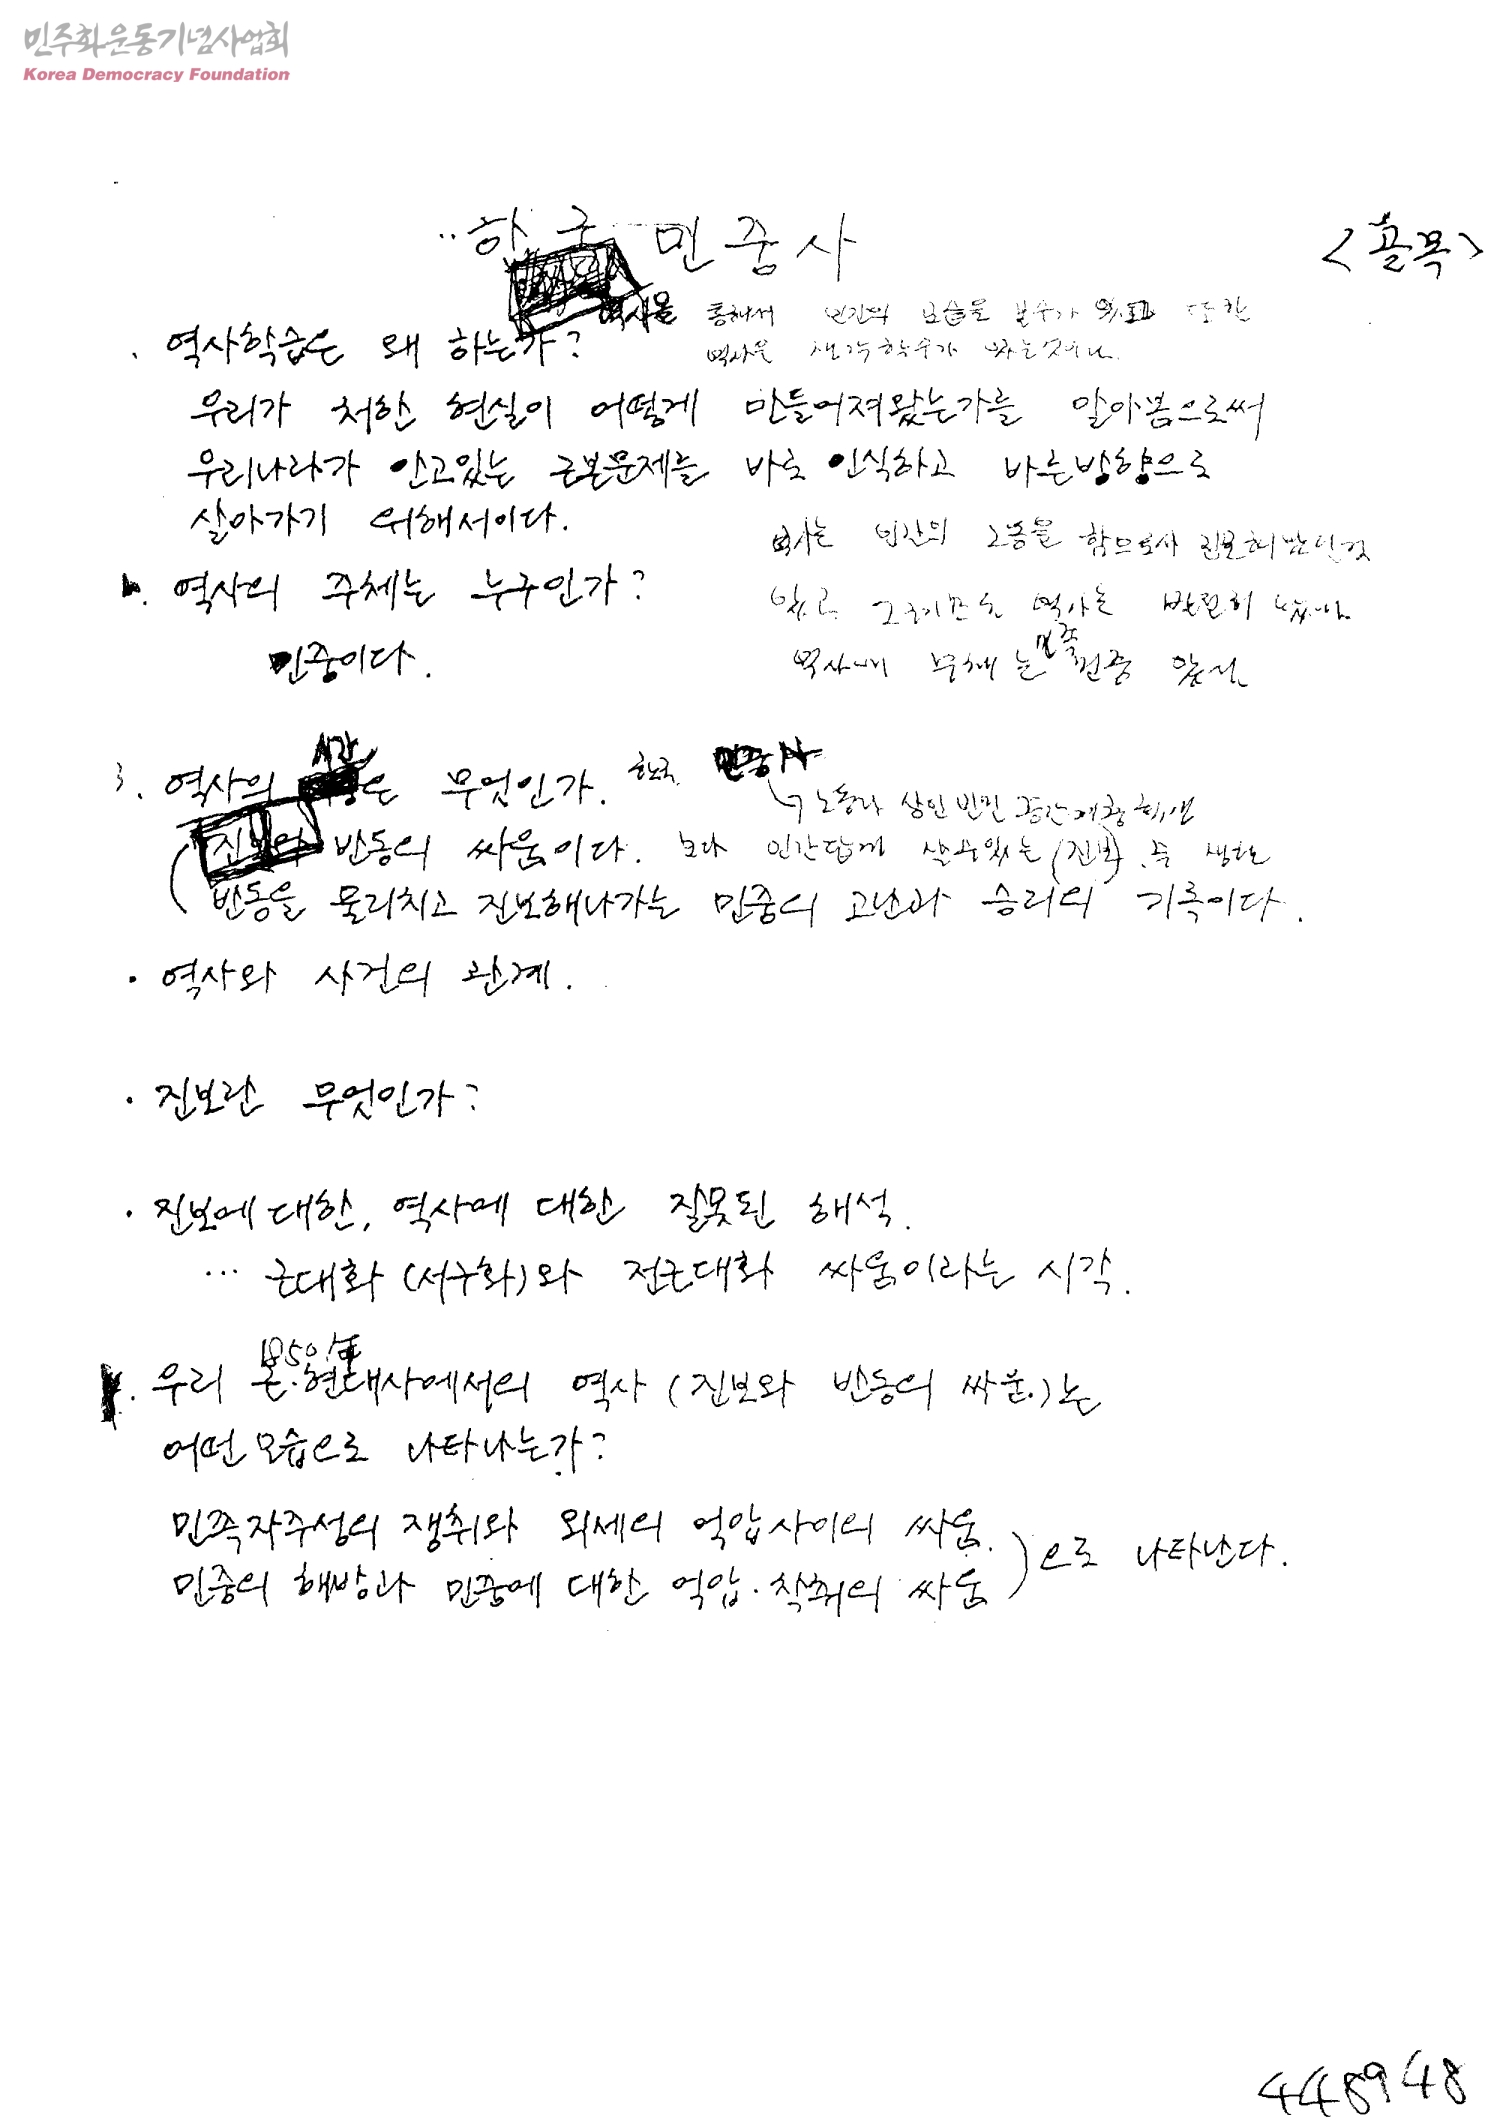 민주화운동기념사업회
Korea Democracy Foundation
한국 민중사
<골목>
역사학습은 왜 하는가?
역사을 통해서 인간의 모습을 볼수가 있고 또한
역사을 생각할수가 있는것이다.
우리가 처한 현실이 어떻게 만들어져왔는가를 알아봄으로써
우리나라가 안고있는 근본문제를 바로 인식하고 바른방향으로
살아가기 위해서이다.
역사는 인간의 노동을 함으로서
역사의 주체는 누구인가?
있고 그러므로 역사는
민중이다.
민중
3. 역사의 시각은 무엇인가. 한국 민중사
노동자 상인 빈민 중간계층 학생
(진보와 반동의 싸움이다. 보다 인간답게 살수있는 (진보).
반동을 물리치고 진보해나가는 민중의 고난과 승리의 기록이다.
· 역사와 사건의 관계.
· 진보란 무엇인가?
· 진보에 대한, 역사에 대한 잘못된 해석.
… 근대화 (서구화)와 전근대화 싸움이라는 시각.
1850년
우리 근·현대사에서의 역사 (진보와 반동의 싸움.)는
어떤 모습으로 나타나는가?
민족자주성의 쟁취와 외세의 억압사이의 싸움.
민중의 해방과 민중에 대한 억압·착취의 싸움
) 으로 나타난다.
448948